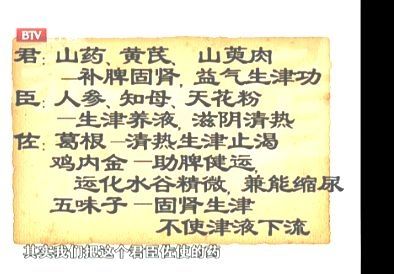 BTV
君：山药、黄芪、山萸肉
—补脾固肾，益气生津功
臣：人参、知母、天花粉
—生津养液，滋阴清热
佐：葛根—清热生津止渴
鸡内金—助脾健运，
运化水谷精微，兼能缩尿
五味子—固肾生津
不使津液下流
其实我们把这个君臣佐使的药